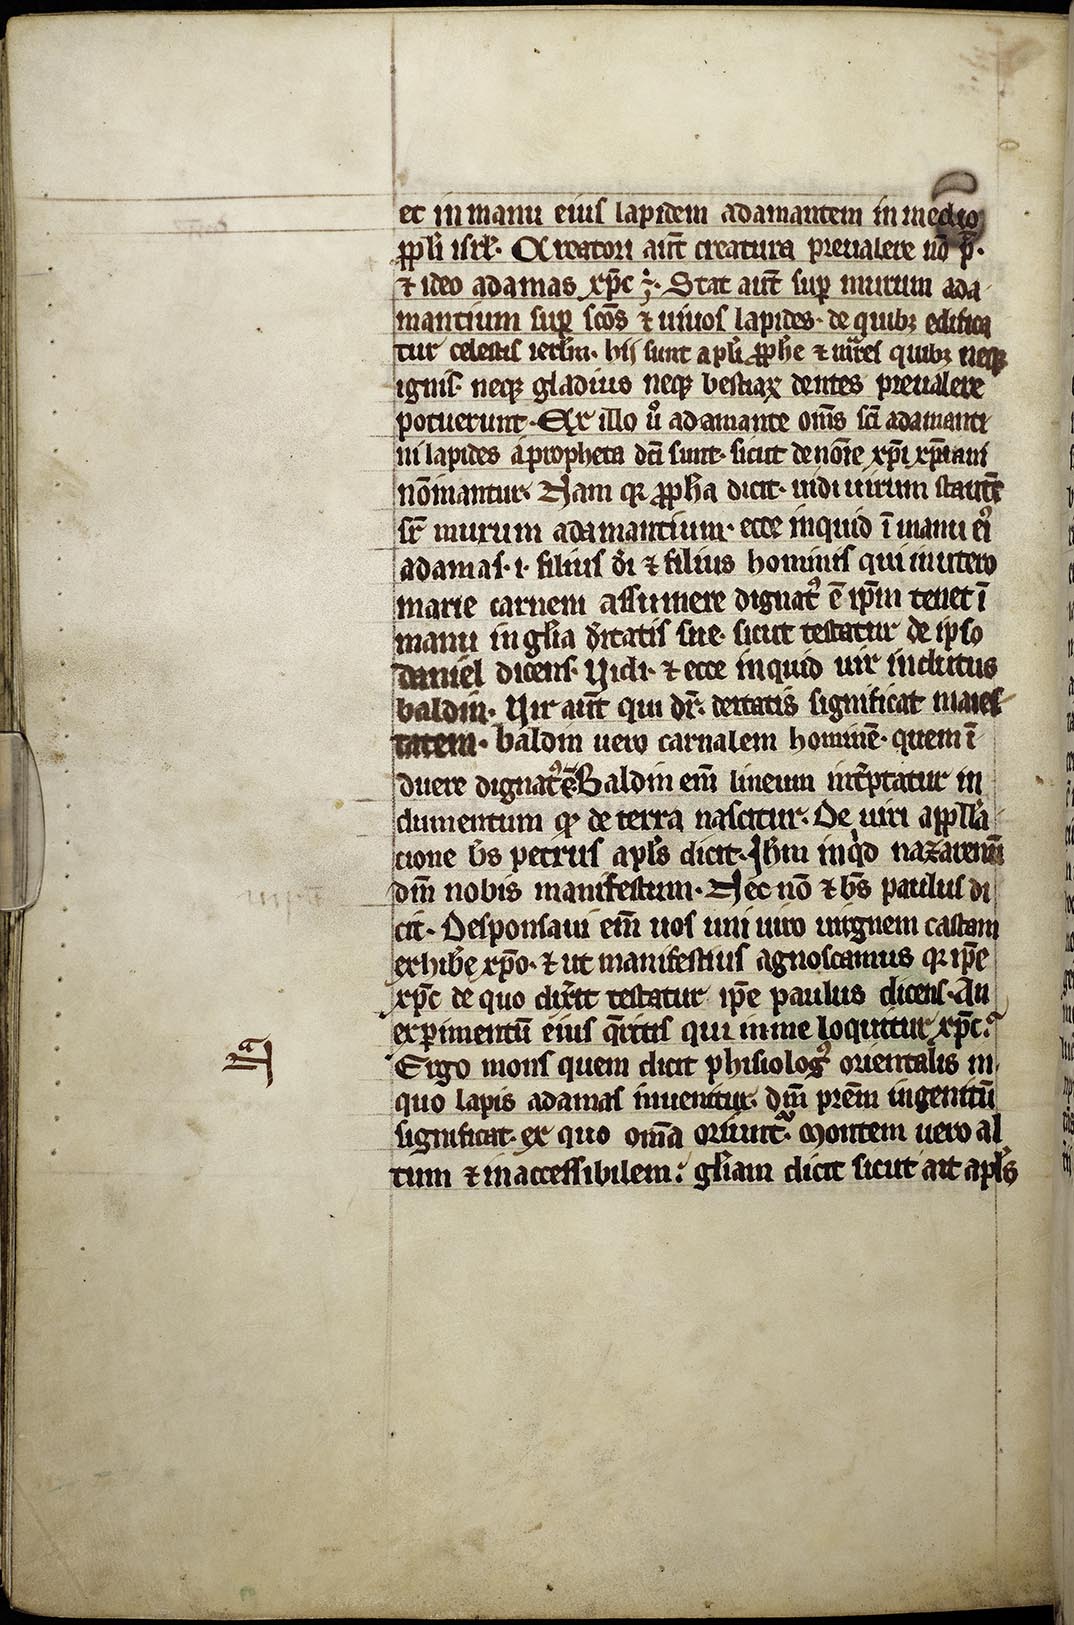 et in manu eius lapidem adamantem in medio
ppl̃i isrl̃. Creatori aut̃ creatura preualere nõ p̃.
⁊ ideo adamas xp̃c ÷. Stat aut̃ sup̲ murum ada
mantium sup̲ scõs ⁊ uiuos lapides. de quibꝫ edifica
tur celestis ierl̃m. hii sunt apl̃i ꝓph̃e ⁊ mr̃es quibꝫ neqꝫ
ignis. neqꝫ gladius neqꝫ bestiaꝝ dentes preualere
potuerunt. Ex illo u̾o adamante om̃s sc̃i adamanti
ni lapides a propheta dc̃i sunt. sicut de nõie xp̃i xp̃iani
nõinantur. Nam qr ꝓph̃a dicit. uidi uirum stantẽ
sr̃ murum adamantium. ecce inquid ĩ manu eiꝰ
adamas. i. filius dĩ ⁊ filius hominis qui in utero
marie carnem assumere dignatꝰ ẽ ip̃m tenet ĩ
manu in gl̃ia d̾itatis sue. sicut testatur de ipso
daniel dicens. Uidi. ⁊ ecce inquid uir indutus
baldin. Uir aut̃ qui dr̃. deitatis significat maies
tatem. baldin uero carnalem hominẽ. quem ĩ
duere dignatꝰ ẽ. Baldin em̃ lineum int̾p̃tatur in
dumentum qꝫ de terra nascitur. De uiri appll̃a
cione b̃s petrus apl̃s dicit. Ihm̃ inqͥd nazarenũ
dm̃ nobis manifestum. Nec nõ ⁊ b̃s paulus di
cit. Desponsaui em̃ uos uni uiro uirginem castam
exhib̾e xp̃o. ⁊ ut manifestius agnoscamus qr ip̃e
xp̃c de quo dix̾it testatur ip̃e paulus dicens. An
exp̲imentũ eius q̃ritis qui in me loquitur xp̃c.
Ergo mons quem dicit phisiologꝰ orientalis in
quo lapis adamas inuenitur. dm̃ prẽm ingenitũ
significat. ex quo om̃a oriunt᷑. Montem uero al
tum ⁊ inaccessibilem. gl̃iam dicit sicut ait apl̃s